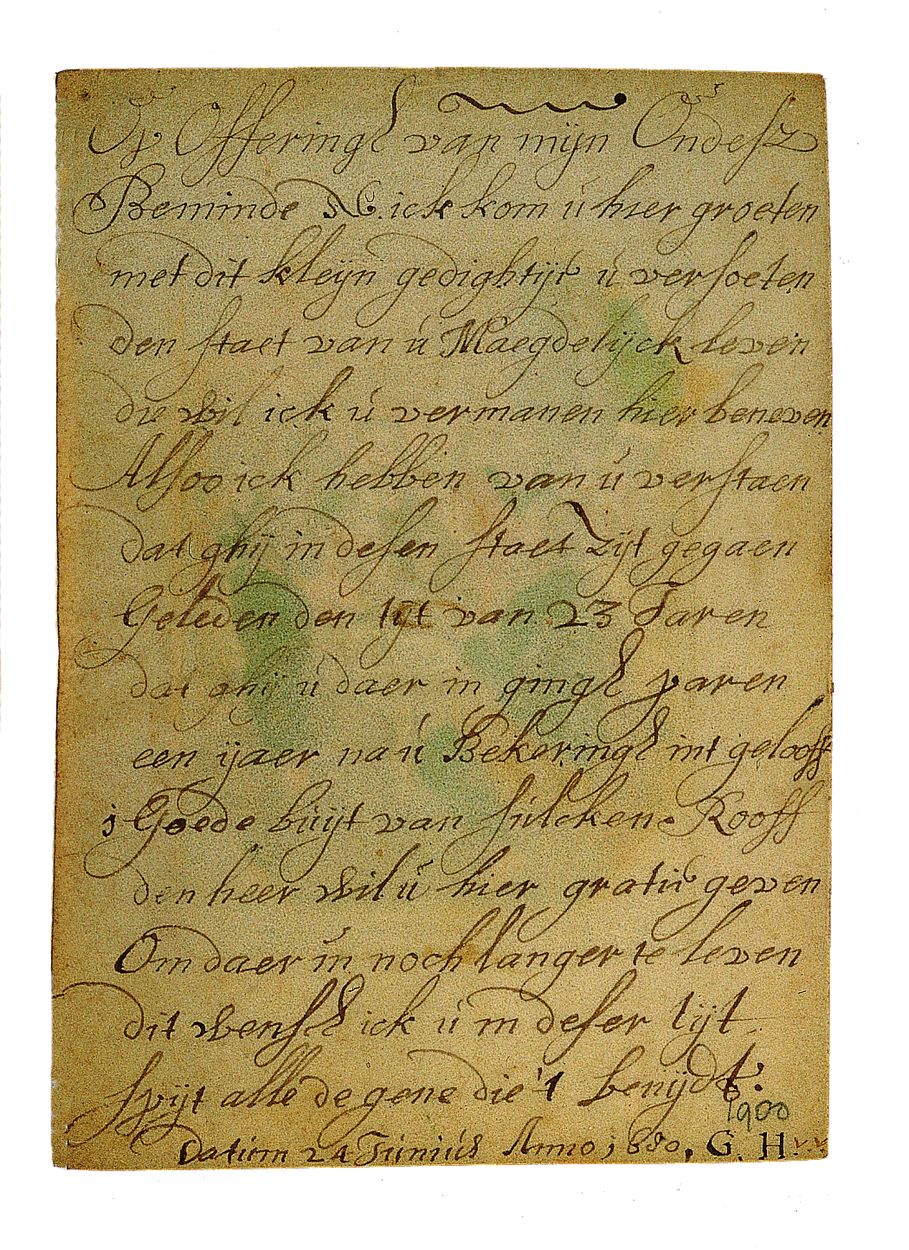 Op Offeringh van mijn Ondesz
Beminde N. ick kom ú hier groeten
met dit kleijn gedight ijt ú versoeten
den staet van ú Maegdelijck leven
die wil ick ú vermanen hier beneven
Alsoo ick hebben van ú verstaen
dat ghij in desen staet zijt gegaen
Geleden den tijt van 23 Jaren
dat ghij ú daer in gingh paren
een ijaer na ú Bekeringh int gelooff
j Goede búijt van súlcken Rooff
den heer wil ú hier gratie geven
Om daer in noch langer te leven
dit wensch ick ú in deser tijt
spijt alle de gene die 't benijdt.
1900
Datúm 24 Júniús Anno j680, G. H.